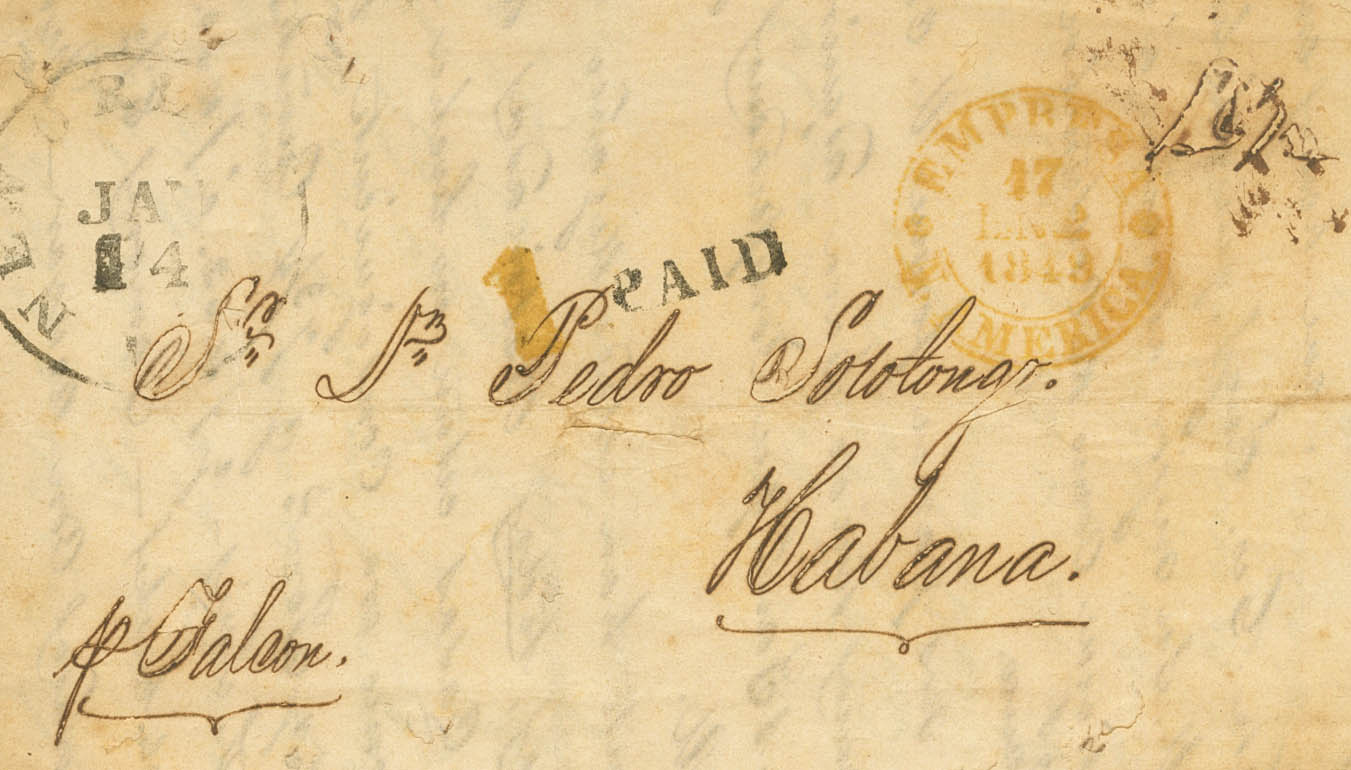 JAN
14
PAID
1
EMPRESA
17
EN2
1849
AMERICA
Sr. Dn. Pedro Sototongo.
Habana.
p Falcon.